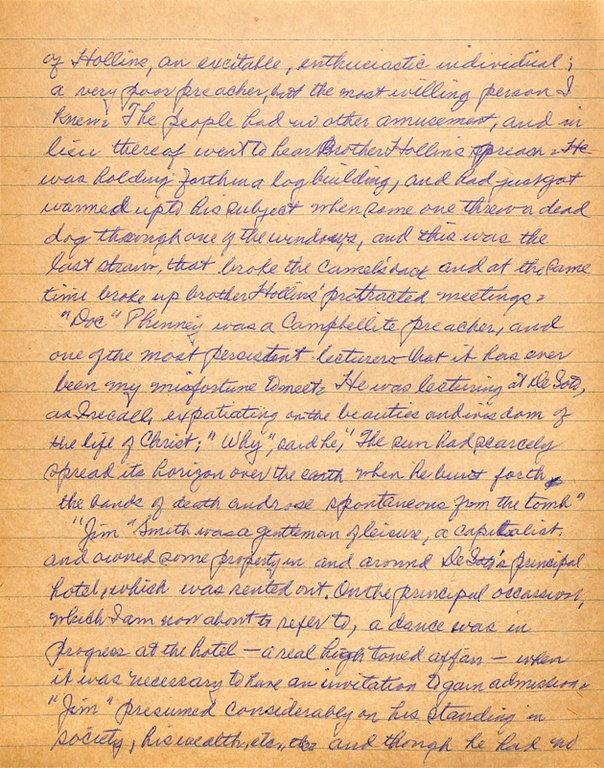 of Hollins, an excitable, enthuciactic individual;
a very poor preacher, but the most willing person I
knew. The people had no other amusement, and in
lieu thereof went to hear Brother Hollins preach. He
was holding forth in a log building, and had just got
warmed up to his subject when some one threw a dead
dog through one of the windows, and this was the
last straw, that broke the camel's back and at the same
time broke up brother Hollins' protracted meetings.
"Doc" Phinney was a Campbellite preacher, and
one of the most persistent lecturers that it has ever
been my misfortune to meet. He was lecturing at De Soto,
as I recall, expatiating on the beauties and wisdom of
the life of Christ; "Why", said he, "The sun had scarcely
spread its horizon over the earth when he burst forth
the bands of death and rose spontaneous from the tomb"
"Jim" Smith was a gentleman of leisure, a capitalist,
and owned some property in and around De Soto's principal
hotel, which was rented out. On the principal occassion,
which I am now about to refer to, a dance was in
progress at the hotel — a real high toned affair — when
it was necessary to have an invitation to gain admission.
"Jim" presumed considerably on his standing in
society, his wealth, etc., and though he had no